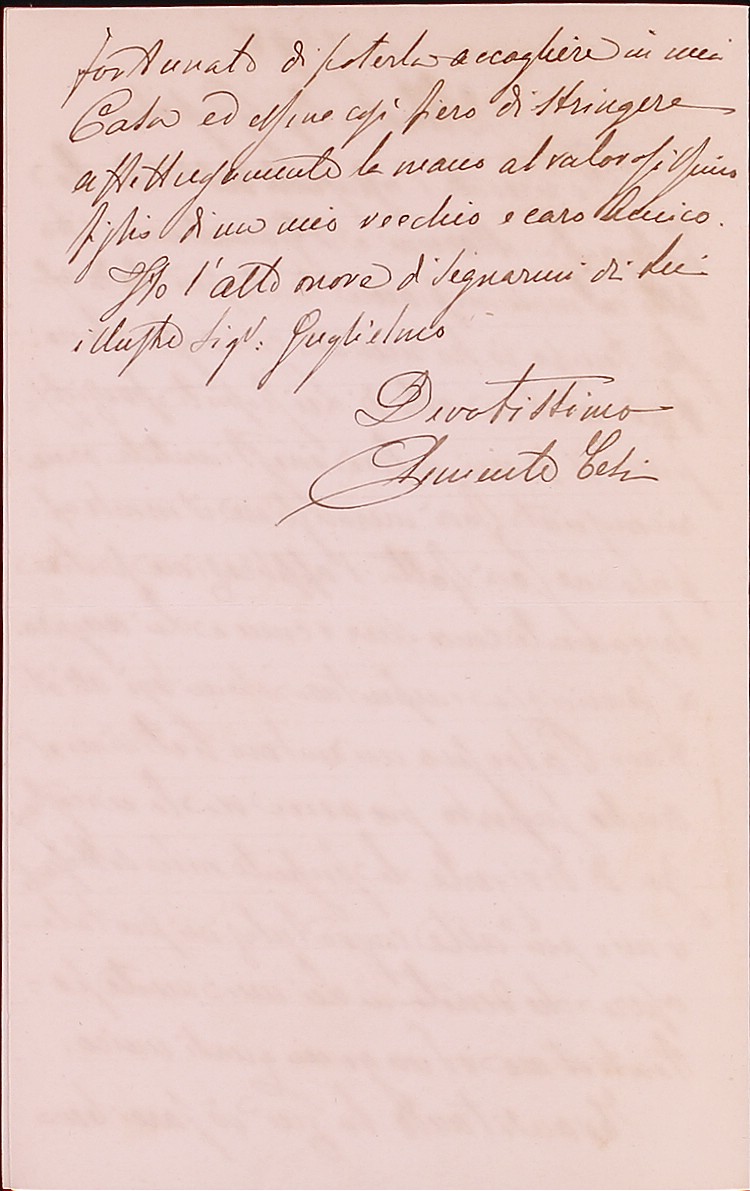 fortunato di poterla accogliere in mia
Casa ed essere così fiero di stringere
affettuosamente la mano al valorosissimo
figlio di un mio vecchio e caro Amico.
Ho l'alto onore di segnarmi di Lei
illustre Sigr. Guglielmo
Devotissimo
Clemente Tesi